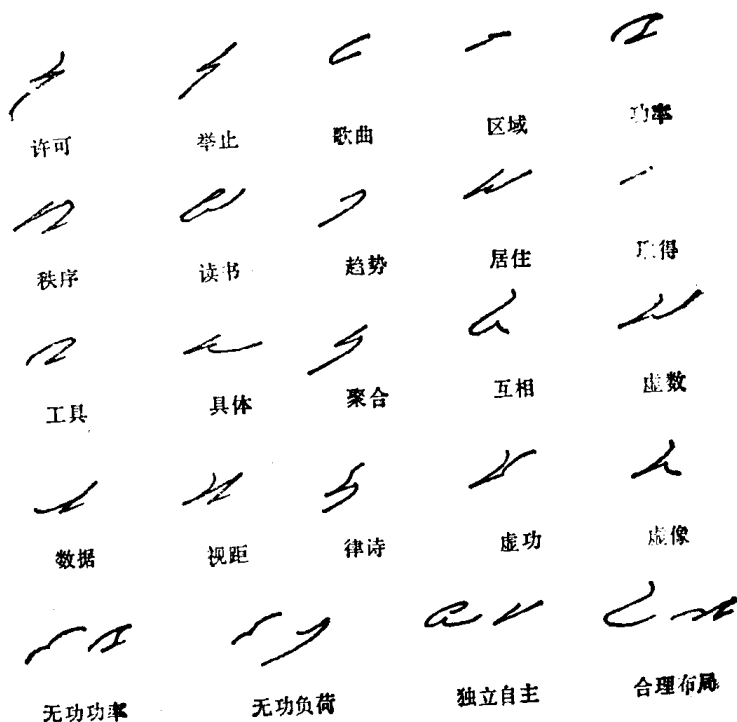 许可 举止 歌曲 区域 功率
秩序 读书 趋势 居住 取得
工具 具体 聚合 互相 虚数
数据 视距 律诗 虚功 虚像
无功功率 无功负荷 独立自主 合理布局